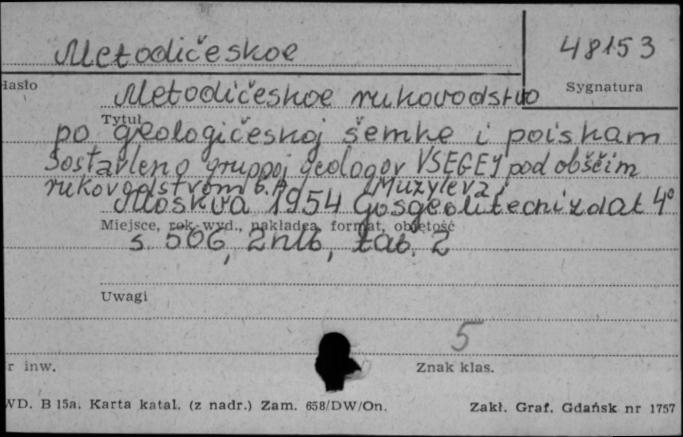 Metodičeskoe
48153
Hasło
Sygnatura
Metodičeskoe rukovodstvo
Tytuł
po geologičeskoj šemke i poiskam
Sostavleno gruppoj geologov VSEGEJ pod obščim
rukovodstvom
Muzyleva
Moskva 1954 Gosgeolitechizdat 4°
Miejsce, rok wyd., nakładca, format, objętość
s. 506, 2 nlb, tab. 2
Uwagi
5
r inw.
Znak klas.
WD. B 15a. Karta katal. (z nadr.) Zam. 658/DW/On.
Zakł. Graf. Gdańsk nr 1757